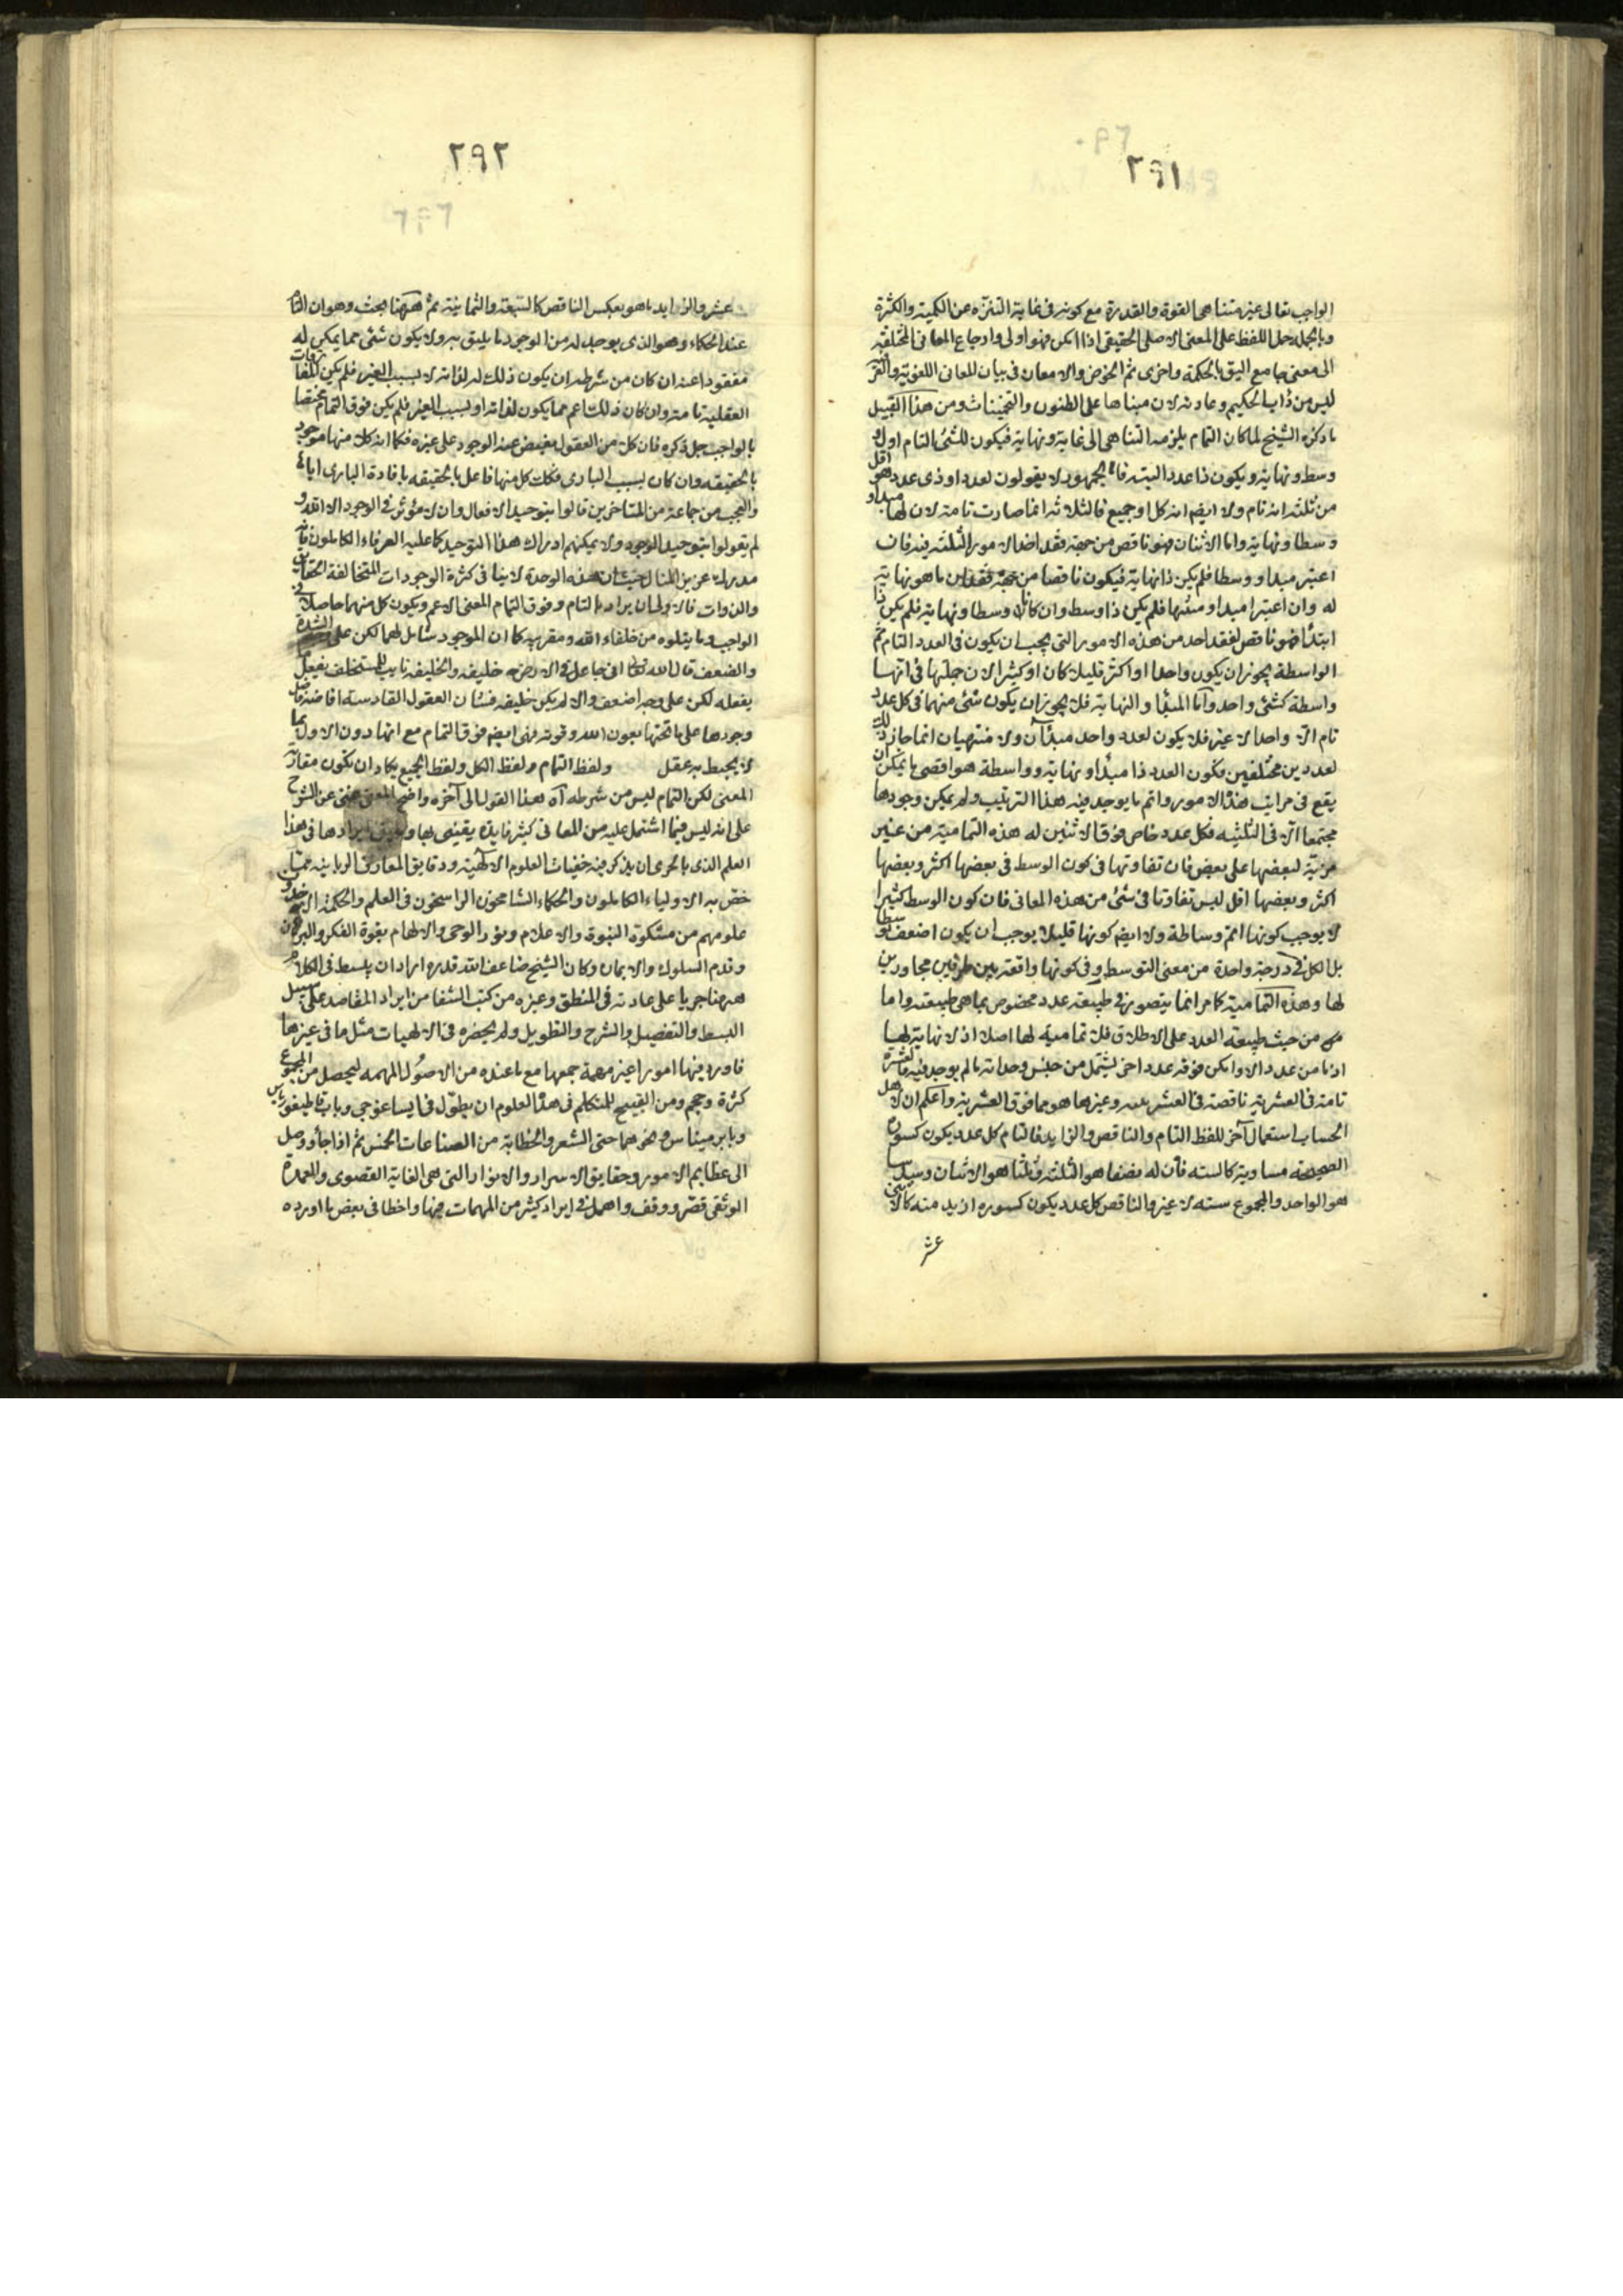 ٢٩١
الواجب تعالى غير متناهى القوة والقدرة مع كونه فى غاية التنزه عن الكمية والكثرة
وبالجملة حمل اللفظ على المعنى الاصلى الحقيقى اذا امكن فهو اولى وارجاع المعانى المختلفة
الى معنى جامع اليق بالحكمة واحرى ثم الخوض والامعان فى بيان المعانى اللغوية والعرفية
ليس من دأب الحكيم وعادته لان مبناها على الظنون والتخمينات ومن هذا القبيل
ما ذكره الشيخ لما كان التمام يلزمه التناهى الى غاية ونهاية فيكون للشئ التام اول و
وسط ونهاية ويكون ذا عدد البتة فان الجمهور لا يقولون لعدد او ذى عدد هو اقل
من ثلثة انه تام ولا ايضا انه كل او جميع فالثلاثة انما صارت تامة لان لها مبدأ و
وسطا ونهاية واما الاثنان فهو ناقص من جهة فقد احد الامور الثلثة فيه فان
اعتبر مبدأ ووسطا فلم يكن ذا نهاية فيكون ناقصا من جهة فقدان ما هو نهاية
له وان اعتبرا مبدأ ومنتهى فلم يكن ذا وسط وان كانا وسطا ونهاية فلم يكن ذا
ابتدأ فهو ناقص لفقد احد من هذه الامور التى يجب ان يكون فى العدد التام ثم
الواسطة يجوز ان يكون واحدا او اكثر قليلا كان او كثيرا لان جملتها فى انها
واسطة كشئ واحد وأما المبدأ والنهاية فلا يجوز ان يكون شئ منهما فى كل عدد
تام الا واحدا لا غير فلا يكون لعدد واحد مبدآن ولا منتهيان انما جاز ذلك
لعددين مختلفين فكون العدد ذا مبدأ ونهاية وواسطة هو اقصى ما يمكن ان
يقع فى مراتب هذه الامور واتم ما يوجد فيه هذا الترتيب ولم يمكن وجودها
مجتمعا الا فى الثلثيه فكل عدد خاص فوق الاثنين له هذه التمامية من غير
مزية لبعضها على بعض فان تفاوتها فى كون الوسط فى بعضها اكثر وبعضها
اكثر وبعضها اقل ليس تفاوتا فى شئ من هذه المعانى فان كون الوسط كثيرا
لا يوجب كونها اتم وساطة ولا ايضا كونها قليلا يوجب ان يكون اضعف توسطا
بل الكل فى درجة واحدة من معنى التوسط وفى كونها واقعة بين طرفين مجاورين
لها وهذه التمامية كما مر انما يتصور فى طبيعة عدد مخصوص بما هى طبيعته واما
من حيث طبيعة العدد على الاطلاق فلا تمامية لها اصلا اذ لا نهاية لها
اذ ما من عدد الا وامكن فوقه عدد اخر يشتمل من جنس وحداته ما لم يوجد فيه فالعشرة
تامة فى العشرية ناقصة فى العشرينية وغيرها هو مما فوق العشرية واعلم ان لاهل
الحساب استعمال آخر للفظ التام والناقص والزايد فالتام كل عدد يكون كسوره
الصحيحة مساوية كالستة فان له نصفا هو الثلثة وثلثا هو الاثنان وسدسا
هو الواحد والمجموع ستة لا غير والناقص كل عدد يكون كسوره ازيد منه كالاثنى
عشر
٢٩٢
عشر والزايد ما هو بعكس الناقص كالسبعة والثمانية ثم ههنا بحث وهو ان التام
عند الحكماء وهو الذى يوجد له من الوجود ما يليق به ولا يكون شئ مما يمكن له
مفقودا عنه ان كان من شرطه ان يكون ذلك له لذاته لا بسبب الغير فلم يكن للمفارقات
العقلية تامة وان كان ذلك اعم مما يكون لذاته او بسبب الغير فلم يكن فوق التمام مختصا
بالواجب جل ذكره فان كلا من العقول يفيض عنه الوجود على غيره فكما انه كلا منها موجود
بالحقيقة وان كان بسبب البارى فكذلك كل منها فاعل بالحقيقة بافادة البارى اياه
والعجب من جماعة من المتاخرين قالوا بتوحيد الافعال وان لا مؤثر فى الوجود الا الله و
لم يقولوا بتوحيد الوجود ولا يمكنهم ادراك هذا التوحيد كما عليه العرفاء الكاملون فان
مدركه عزيز المنال حيث ان هذه الوحدة لا ينافى كثرة الوجودات المتخالفة الحقايق
والذوات فالاولى ان يراد بالتام وفوق التمام المعنى الاعم ويكون كل منهما حاصلا فى
الواجب وما يتلوه من خلفاء الله ومقربيه كما ان الموجود شامل لهما لكن على الشدة
والضعف قال الله تعالى انى جاعل فى الارض خليفة والخليفة نايب للمستخلف يفعل ما
يفعله لكن على وجه اضعف والا لم يكن خليفة فشان العقول القادسة افاضة فايض
وجودها على ما تحتها بعون الله وقوته فهى ايضا فوق التمام مع انها دون الاول بما
لا يحيط به عقل ولفظ التمام ولفظ الكل ولفظ الجميع يكاد ان تكون متقاربة
المعنى لكن التمام ليس من شرطه آه هذا القول الى آخره واضح المعنى غنى عن الشرح
على انه ليس فيما اشتمل عليه من المعانى كثير فايدة يعتنى بها ايرادها فى هذا
العلم الذى بالحرى ان يذكر فيه خفيات العلوم الالهية ودقايق المعارف الربانية مما
خص به الاولياء الكاملون والحكماء الشامخون الراسخون فى العلم والحكمة الذين اخذوا
علومهم من مشكوة النبوة والاعلام ونور الوحى والالهام بقوة الفكر والبرهان
وقدم السلوك والايمان وكان الشيخ ضاعف الله قدره اراد ان يبسط فى الكلام
ههنا جريا على عادته فى المنطق وغيره من كتب الشفا من ايراد المقاصد على سبيل
البسط والتفصيل والشرح والتطويل ولم يحضره فى الالهيات مثل ما فى غيرها
فاورد فيها امورا غير مهمة جمعها مع ما عنده من الاصول المهمه ليحصل من المجموع
كثرة وحجم ومن القبيح للمتكلم فى هذا العلوم ان يطول فى ايساغوجى وباب قاطيغورياس
وبارير ميناس ونحوهما حتى الشعر والخطابة من الصناعات الخمس ثم اذا جاء ووصل
الى عظايم الامور وحقايق الاسرار والانوار التى هى الغاية القصوى والعمدة
الوثقى قصر ووقف واهمل فى ايراد كثير من المهمات فيها واخطا فى بعض ما اورده